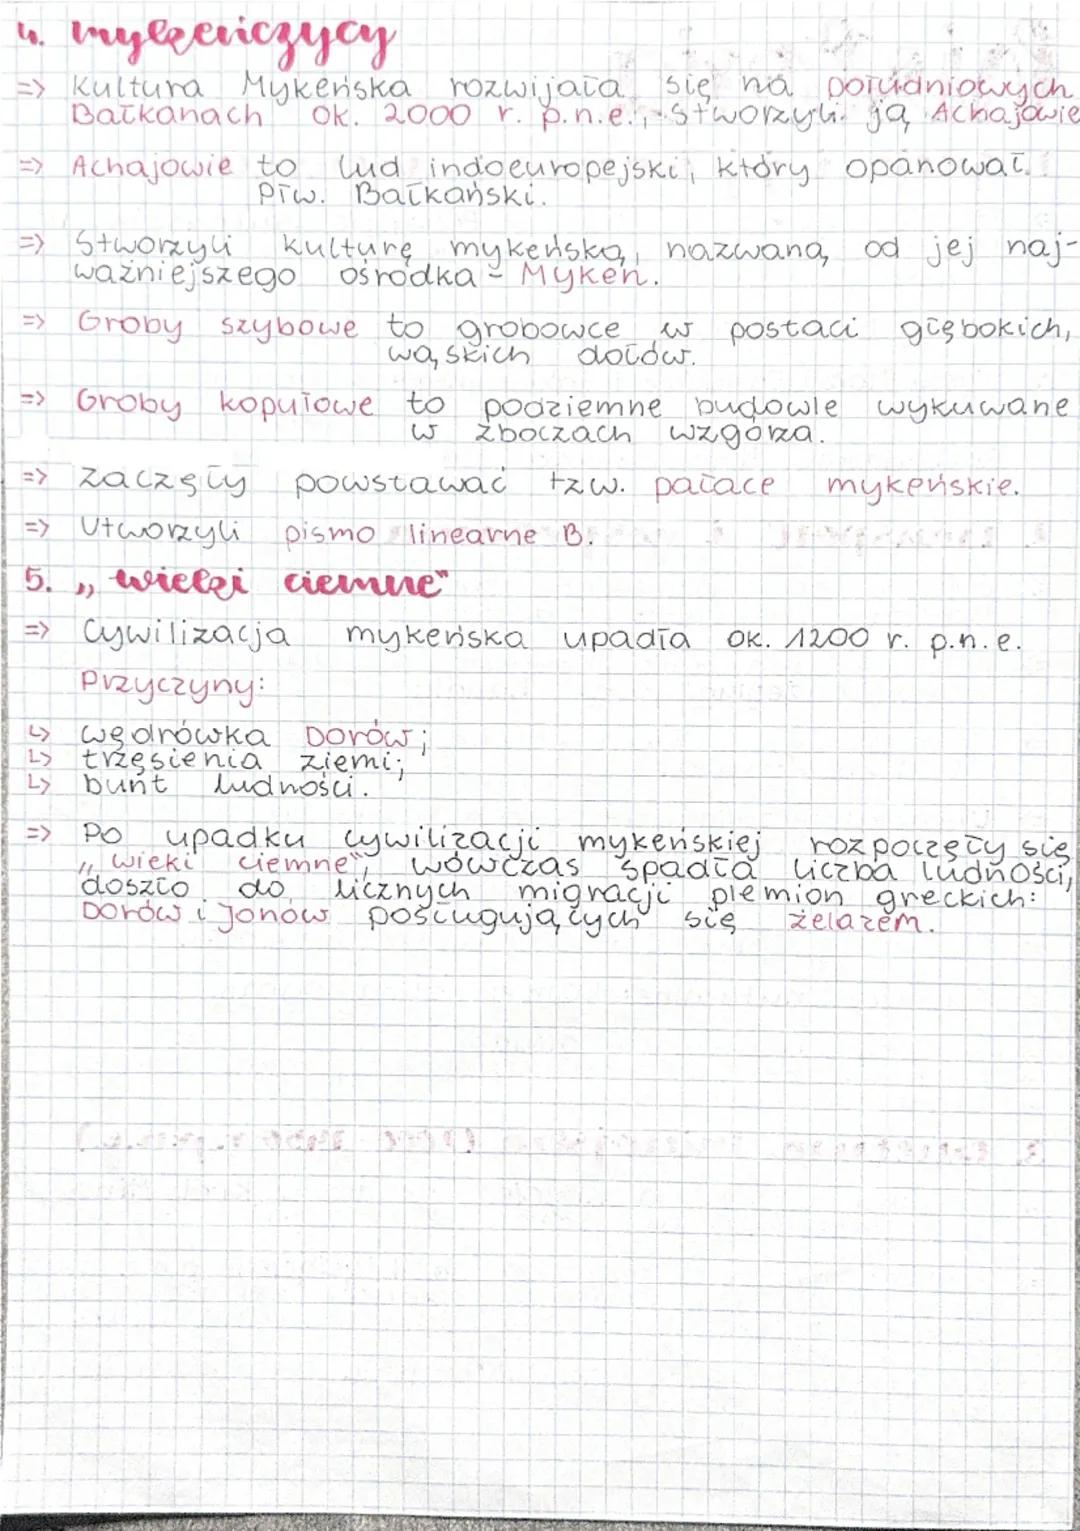 4. mykeńczycy
=> Kultura Mykeńska rozwijała się na południowych
Bałkanach ok. 2000 r. p.n.e., stworzyli ją Achajowie
=> Achajowie to lud indoeuropejski, który opanował
Płw. Bałkański.
=> Stworzyli kulturę mykeńską, nazwaną od jej naj-
ważniejszego ośrodka - Myken.
=> Groby szybowe to grobowce w postaci głębokich,
wąskich dołów.
=> Groby kopułowe to podziemne budowle wykuwane
w zboczach wzgórza.
=> Zaczęły powstawać tzw. pałace mykeńskie.
=> Utworzyli pismo linearne B.
5. „wieki ciemne"
=> Cywilizacja mykeńska upadła ok. 1200 r. p.n.e.
Przyczyny:
↳ wędrówka Dorów;
↳ trzęsienia ziemi;
↳ bunt ludności.
=> Po upadku cywilizacji mykeńskiej rozpoczęły się
„wieki ciemne", wówczas spadła liczba ludności,
doszło do licznych migracji plemion greckich:
Dorów i Jonów posługujących się żelazem.